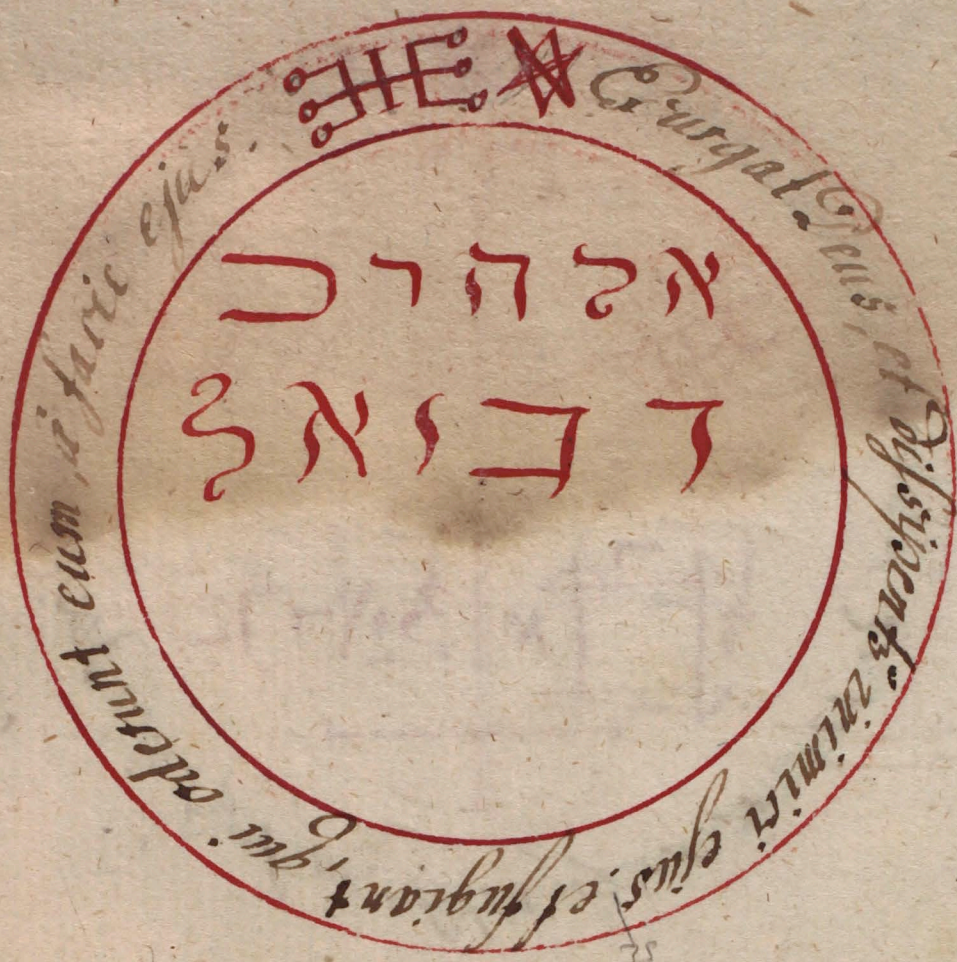 Exurgat Deus, et dissipentur inimici ejus. et fugiant, qui oderunt eum, à facie ejus.
אלהרכ
דביאל